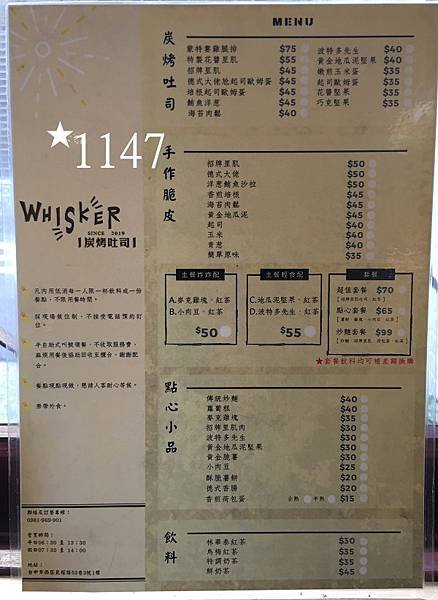 MENU
炭烤吐司
蒙特婁雞腿排 $75
特製花醬里肌 $55
招牌里肌 $45
德式大佬尬起司歐姆蛋 $45
培根起司歐姆蛋 $45
鮪魚洋蔥 $45
海苔肉鬆 $40
波特多先生 $40
黃金地瓜泥堅果 $40
嫩煎玉米蛋 $35
起司歐姆蛋 $35
花醬堅果 $35
巧克堅果 $35
★1147
手作脆皮
招牌里肌 $50
德式大佬 $50
洋蔥鮪魚沙拉 $50
香煎培根 $45
海苔肉鬆 $45
黃金地瓜泥 $45
起司 $40
玉米 $40
青蔥 $40
簡單原味 $35
WHISKER
SINCE 2019
炭烤吐司
凡內用低消每一人限一杯飲料或一份
餐點，不限用餐時間。
採現場候位制、不接受電話預約訂
位。
半自助式叫號領餐、不收取服務費，
麻煩用餐後協助回收至櫃台，謝謝配
合。
餐點現點現做，懇請人客耐心等候。
禁帶外食。
主餐炸炸配
A.麥克雞塊、紅茶
B.小肉豆、紅茶
$50
主餐輕食配
C.地瓜泥堅果、紅茶
D.波特多先生、紅茶
$55
套餐
超值套餐 $70
點心套餐 $65
炒麵套餐 $99
★套餐飲料均可補差額換購
點心小品
傳統炒麵 $40
蘿蔔糕 $40
麥克雞塊 $35
招牌里肌肉 $30
波特多先生 $30
黃金地瓜泥堅果 $30
黃金脆薯 $30
小肉豆 $25
酥脆薯餅 $20
德式香腸 $20
香煎荷包蛋 全熟 半熟 $15
飲料
林華泰紅茶 $30
烏梅紅茶 $35
特調奶茶 $35
鮮奶茶 $45
聯絡及訂餐專線：
0961-969-901
營業時間：
平日06：30 至 13：30
假日07：30 至 14：00
地址：